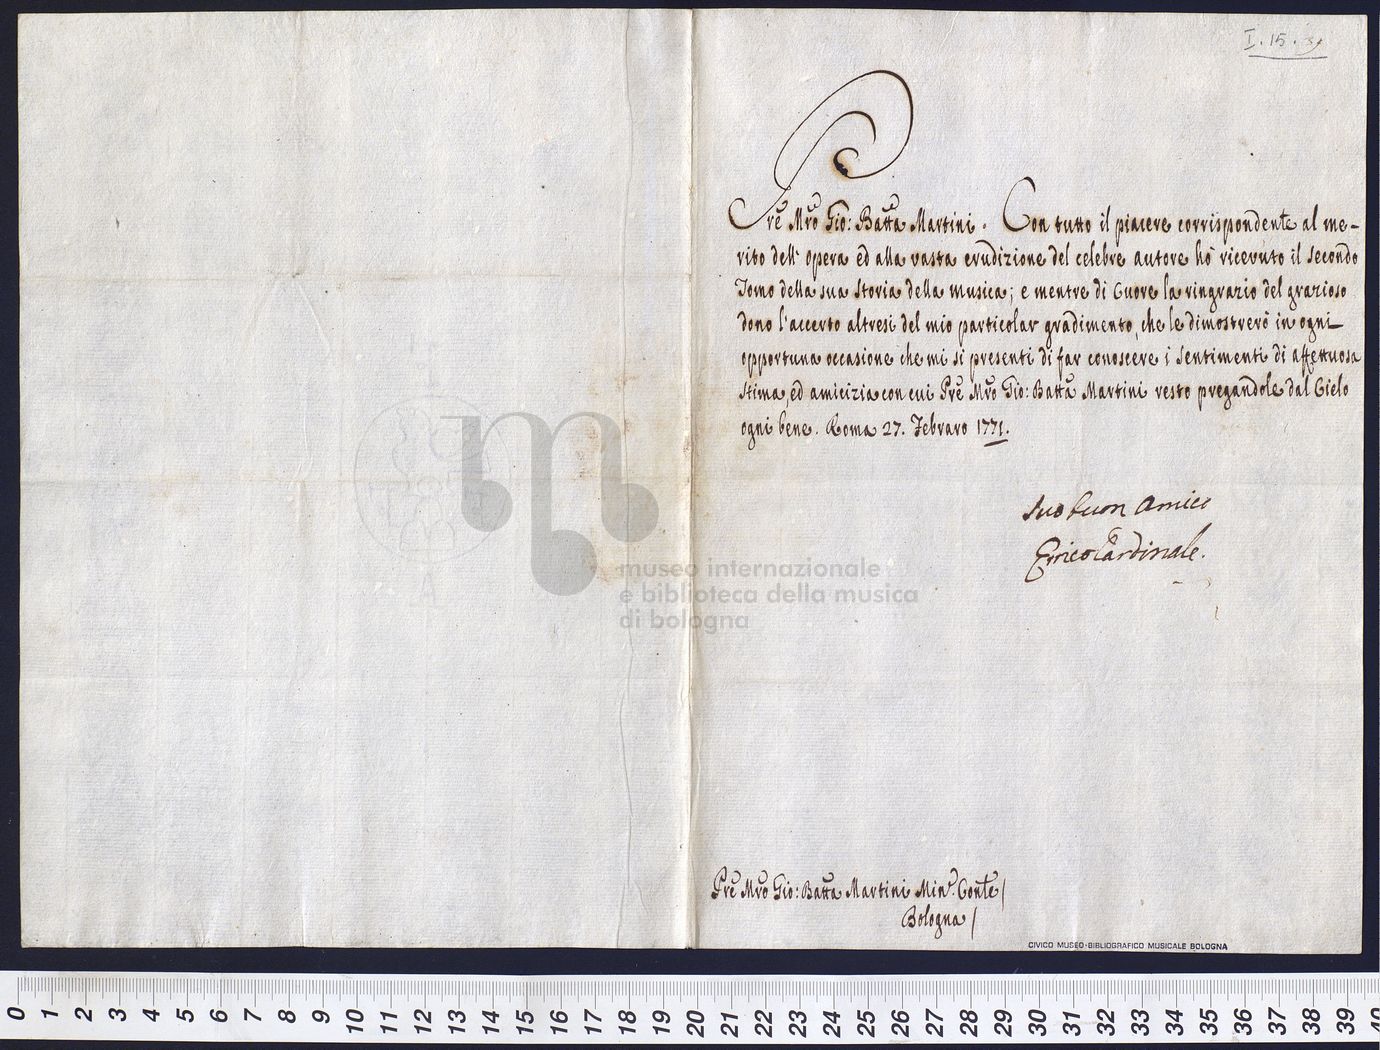 I. 15.
Pre Mro Gio: Batta Martini. Con tutto il piacere corrispondente al me-
rito dell' opera ed alla vasta erudizione del celebre autore hò ricevuto il secondo
Tomo della sua Storia della musica; e mentre di Cuore la ringrazio del grazioso
dono l'accerto altresì del mio particolar gradimento, che le dimostrerò in ogni
opportuna occasione che mi si presenti di far conoscere i sentimenti di affettuosa
stima, ed amicizia con cui Pre Mro Gio: Batta Martini resto pregandole dal Cielo
ogni bene. Roma 27. Febraro 1771.
suo buon Amico
Errico Cardinale.
museo internazionale
e biblioteca della musica
di bologna
Pre Mro Gio: Batta Martini Minr. Conle
Bologna
CIVICO MUSEO-BIBLIOGRAFICO MUSICALE BOLOGNA
0 1 2 3 4 5 6 7 8 9 10 11 12 13 14 15 16 17 18 19 20 21 22 23 24 25 26 27 28 29 30 31 32 33 34 35 36 37 38 39 40